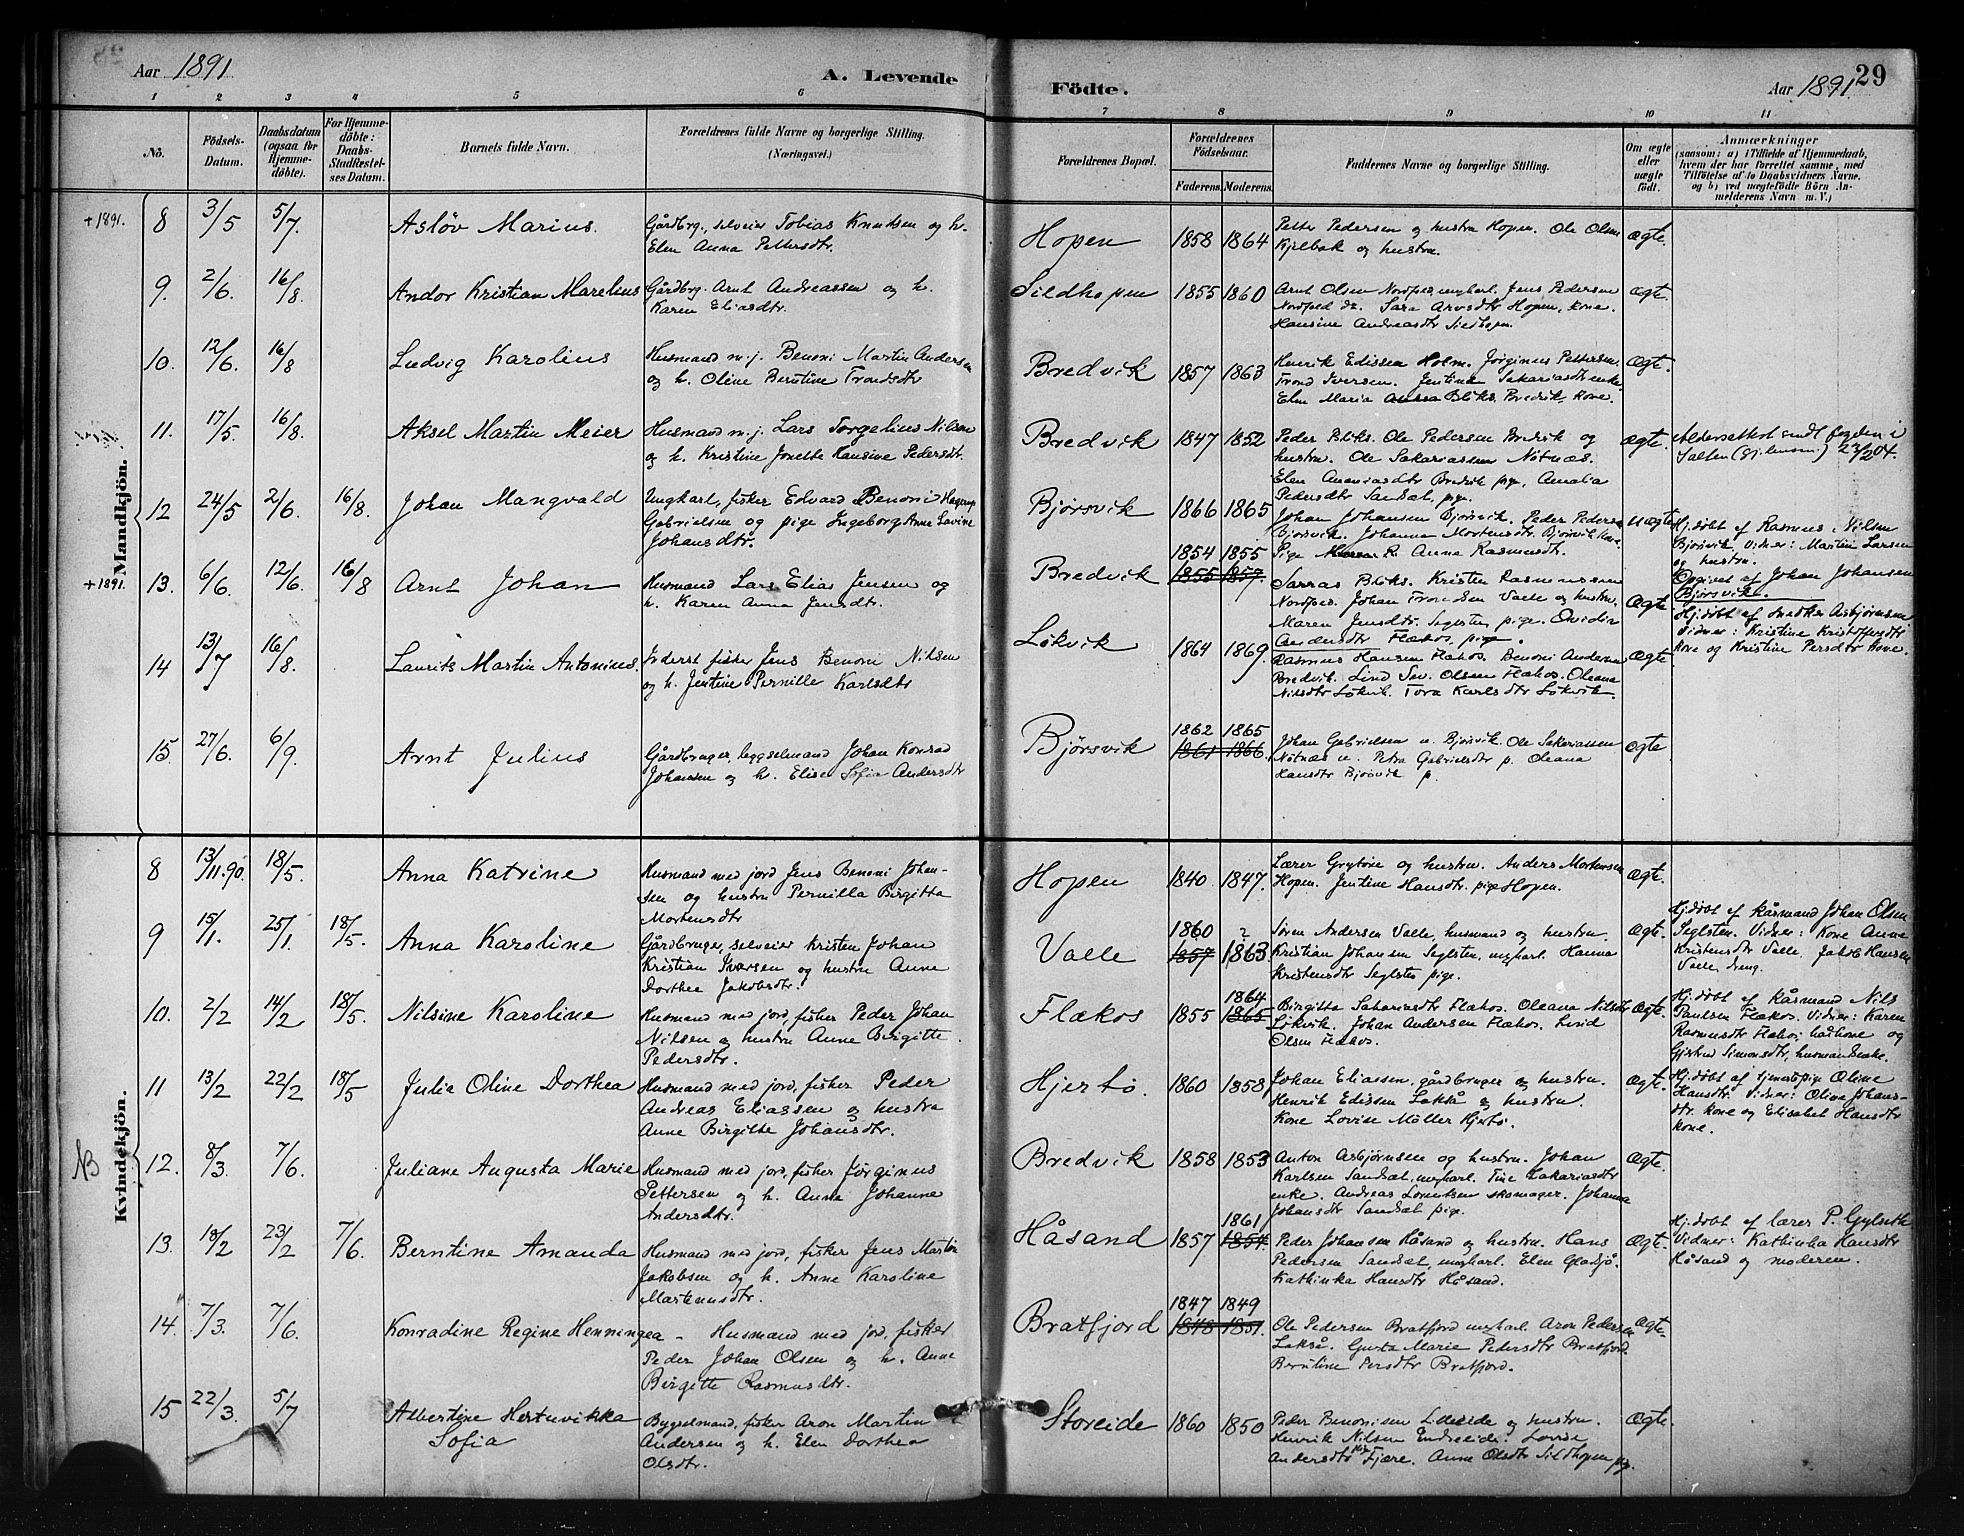 Aar 1891
A. Levende
Födte.
Aar 1891.
29
1 2 3 4 5 6 7 8 9 10 11
No.
Födsels-Datum.
Daabsdatum (ogsaa for Hjemme-döbte).
For Hjemme-döbte: Daabs-Stadfestel-ses Datum.
Barnets fulde Navn.
Forældrenes fulde Navne og borgerlige Stilling. (Næringsvei.)
Forældrenes Bopæl.
Forældrenes Födselsaar.
Faderens. Moderens.
Faddernes Navne og borgerlige Stilling.
Om ægte eller uægte födt.
Anmærkninger
(saasom: a) i Tilfælde af Hjemmedaab,
hvem der har forrettet samme, med
Tilföielse af to Daabsvidners Navne.
og b) ved uægtefödte Börn An-
melderens Navn m. V.)
Mandkjön.
+1891. 8 3/5 5/7 Asløv Marius. Gårdbrg., selveier Tobias Knudsen og h.
Elen Anna Pettersdtr. Hopen 1858 1864 Petter Pedersen og hustru Hopen. Ole Olsen
Kjelbak og hustru. ægte.
9. 2/6. 16/8 Andor Kristian Marelius Gårdbrg. Arnt Andreassen og h.
Karen Eliasdtr. Sildhopen 1855 1860 Arnt Olsen Nordfjed, ungkarl. Jens Pedersen
Nordfjed do. Sara Arvsdtr Hopen, kone.
Hansine Andreasdtr Sildhopen. Ægte.
10. 12/6. 16/8 Ludvig Karolius Husmand m. j. Benoni Martin Andersen
og h. Oline Berntine Trondsdtr Bredvik 1857 1863 Henrik Edissen Holm. Jørginus Pettersen.
Trond Iversen. Jentine Sakariasdtr enke.
Elen Maria Bloks. Bredvik kone. Ægte.
11. 17/5. 16/8. Aksel Martin Meier Husmand m. j. Lars Torgelius Nilsen
og h. Kristine Jonette Hansine Pedersdtr. Bredvik 1847 1852 Peder Bloks. Ole Pedersen Bredvik og
hustru. Ole Sakariassen Nötnæs.
Elen Ananiasdtr Bredvik pige, Amalia
Pedersdtr Sandsæt, pige. ægte. Aldersattest sendt fogden i
Salten 22/2 04.
12 24/5 2/6. 16/8. Johan Mangvald Ungkarl, fisker Edvard Benoni Hagerup
Gabrielsen og pige Ingeborg Anne Lovine
Johansdtr. Bjørsvik 1866 1865 Johan Johansen Bjørsvik. Peder Pedersen
Bjørsvik. Johanna Mortensdtr. Bjørsvik kone
Pige Anna Rasmusdtr. uægte Hj.døbt af Rasmus Nilsen
Bjørsvik. Vidner: Martin Larsen
og hustru.
Opgivet af Johan Johansen
Bjørsvik.
+1891. 13. 6/6. 12/6 16/8 Arnt Johan Husmand Lars Elias Jensen og
h. Karen Anna Jensdtr. Bredvik 1854 1855
1855 1857. Sarras Bloks. Kristen Rasmussen
Nordfjed. Johan Trondsen Valle og hustru.
Maren Jensdtr. Seglsten pige. Ovidia
Andersdtr Flækos. pige. Ægte Hj.døbt af Snedker Asbjørnsen
Vidner: Kristine Kristoffersdtr
kone og Kristine Persdtr kone.
14 13/7 16/8. Laurits Martin Antonius. Inderst fisker Jens Benoni Nilsen
og h. Jentine Pernille Karlsdtr Løkvik 1864 1869 Rasmus Hansen Flækos. Benoni Andersen
Bredvik. Lind Sev. Olsen Flækos. Oleana
Nilsdtr Løkvik. Tora Karlsdtr Løkvik. Ægte
15. 27/6. 6/9. Arnt Julius Gårdbruger, byggselmand Johan Konrad
Johansen og h. Elise Sofia Andersdtr Bjørsvik 1862 1865
1861 1866. Johan Gabrielsen u. Bjørsvik. Ole Sakariassen
Nötnæs u. Petra Gabrielsdtr p. Oleana
Hansdtr Bjørsvik p. ægte
Kvindekjön.
8 13/11.90. 18/5. Anna Katrine Husmand med jord Jens Benoni Johan-
sen og hustru Pernilla Birgitta
Mortensdtr Hopen 1840 1847. Lærer Grytøie og hustru. Anders Mortensen
Hopen. Jentine Hansdtr. pige Hopen. Ægte.
9 15/1. 25/1 18/5. Anna Karoline Gårdbruger, selveier Kristen Johan
Kristian Iversen og hustru Anne
Dorthea Jakobsdtr. Valle 1860 ?
1857 1863 Søren Andersen Valle, husmand og hustru.
Kristian Johansen Seglsten, ungkarl. Hanna
Kristensdtr Seglsten pige. Ægte. Hj.døbt af Kårmand Johan Olsen
Seglsten. Vidner: Kone Anne
Kristensdtr Valle, Jakob Hansen
Valle dreng.
10. 2/2 14/2 18/5. Nilsine Karoline Husmand med jord, fisker Peder Johan
Nilsen og hustru Anne Birgitte
Pedersdtr. Flækos 1855 1864
1865 Birgitta Sakariasdtr Flækos. Oleana Nilsdtr
Løkvik. Johan Andersen Flækos. Lind
Olsen Flækos. Ægte. Hj.døbt af Kårmand Nils
Paulsen Flækos. Vidner: Karen
Rasmusdtr Flækos, kårkone og
Gjertrud Simonsdtr, husmandsenke.
11 13/2 22/2 18/5 Julia Oline Dorthea Husmand med jord, fisker Peder
Andreas Eliassen og hustru
Anne Birgitte Johansdtr. Hjertø. 1860 1858 Johan Eliassen, gårdbruger og hustru.
Henrik Edissen Lakså og hustru.
Kone Lovise Möller Hjertø. Ægte. Hj.døbt af tjenestepige Oline
Hansdtr. Vidner: Olive Johans-
dtr. kone og Elisabet Hansdtr
kone.
NB 12. 8/3 7/6. Juliane Augusta Marie Husmand med jord, fisker Jørginus
Pettersen og h. Anna Johanne
Andersdtr. Bredvik 1858 1853 Anton Asbjørnsen og hustru. Johan
Karlsen Sandsæt, ungkarl. Tine Zakariasdtr
enke. Andreas Lorentsen skomager. Johanna
Johansdtr Sandsæt pige. Ægte.
13. 18/2 23/2 7/6. Berntine Amanda Husmand med jord, fisker Jens Martin
Jakobsen og h. Anne Karoline
Martinusdtr. Håsand 1857 1861
1854. Peder Johansen Håsand og hustru. Hans
Pedersen Sandsæt, ungkarl. Elen Gladsjø.
Kathinka Hansdtr Håsand. Ægte. Hj.døbt af lærer P. Gylseth
Vidner: Kathinka Hansdtr
Håsand og moderen.
14. 7/3. 7/6. Konradine Regine Henningea - Husmand med jord, fisker
Peder Johan Olsen og h. Anne
Birgitte Rasmusdtr. Bratfjord 1847 1849
1848 1851. Ole Pedersen Bratfjord ungkarl. Aron Pedersen
Lakså. Gusta Marie Pedersdtr Bratfjord.
Berntine Persdtr Bratfjord. Ægte.
15 22/3. 5/7 Albertine Hertuvikka
Sofia Bygselmand, fisker Aron Martin
Andersen og h. Elen Dorthea
Olsdtr. Storeide 1860 1850 Peder Benonisen Lilleeide og hustru.
Henrik Nilsen Endreeide. Lovise
Andersdtr Fjære. Anne Olsdtr Sildhopen pig. Ægte.